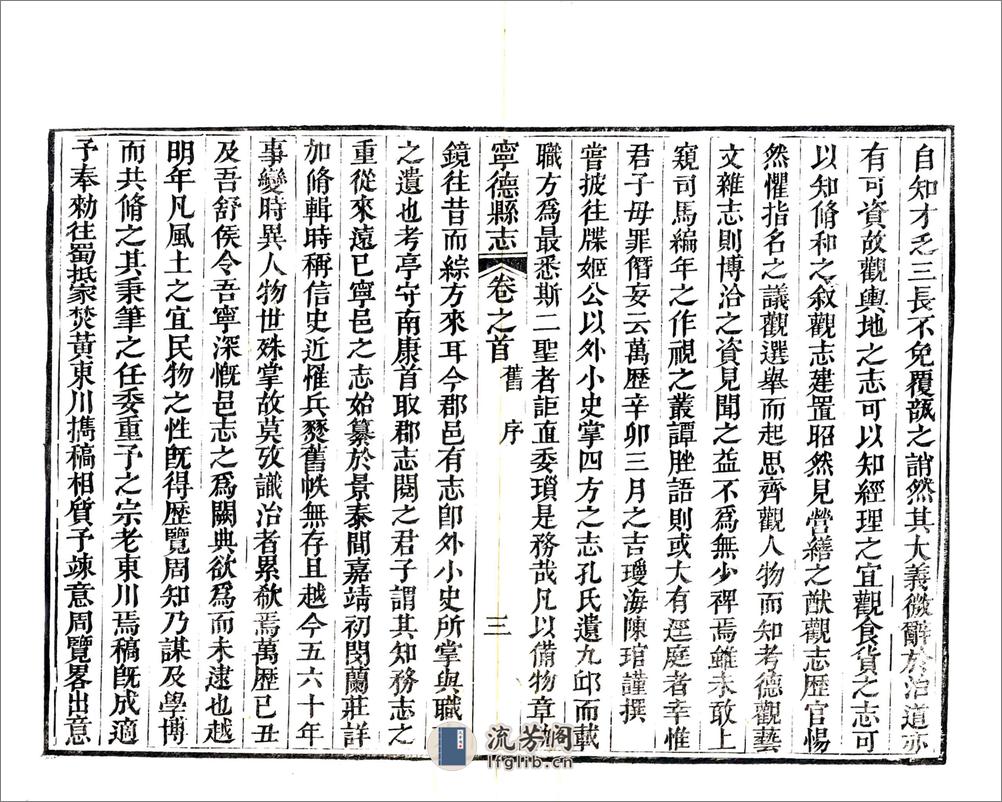 自知才乏三長不免覆瓿之誚然其大義微辭於治道亦
有可資故觀輿地之志可以知經理之宜觀食貨之志可
以知脩和之敘觀志建置昭然見營繕之猷觀志歷官惕
然懼指名之議觀選舉而起思齊觀人物而知考德觀藝
文雜志則博洽之資見聞之益不爲無少裨焉雖未敢上
窺司馬編年之作視之叢譚脞語則或大有逕庭者幸惟
君子毋罪僭妄云萬歷辛卯三月之吉瓊海陳琯謹撰
嘗披往牒姬公以外小史掌四方之志孔氏遺九邱而載
職方爲最悉斯二聖者詎直委瑣是務哉凡以備物章
寧德縣志 卷之首 舊序 三
鏡往昔而綜方來耳今郡邑有志卽外小史所掌與職
之遺也考亭守南康首取郡志閱之君子謂其知務志之
重從來遠已寧邑之志始纂於景泰間嘉靖初閔蘭莊詳
加脩輯時稱信史近罹兵燹舊帙無存且越今五六十年
事變時異人物世殊掌故莫攷識治者累欷焉萬歷己丑
及吾舒侯令吾寧深慨邑志之爲闕典欲爲而未逮也越
明年凡風土之宜民物之性旣得歷覽周知乃謀及學博
而共脩之其秉筆之任委重予之宗老東川焉稿旣成適
予奉勑往蜀抵家焚黃東川擕稿相質予竦意周覽畧出意
流芳閣
lfglib.cn